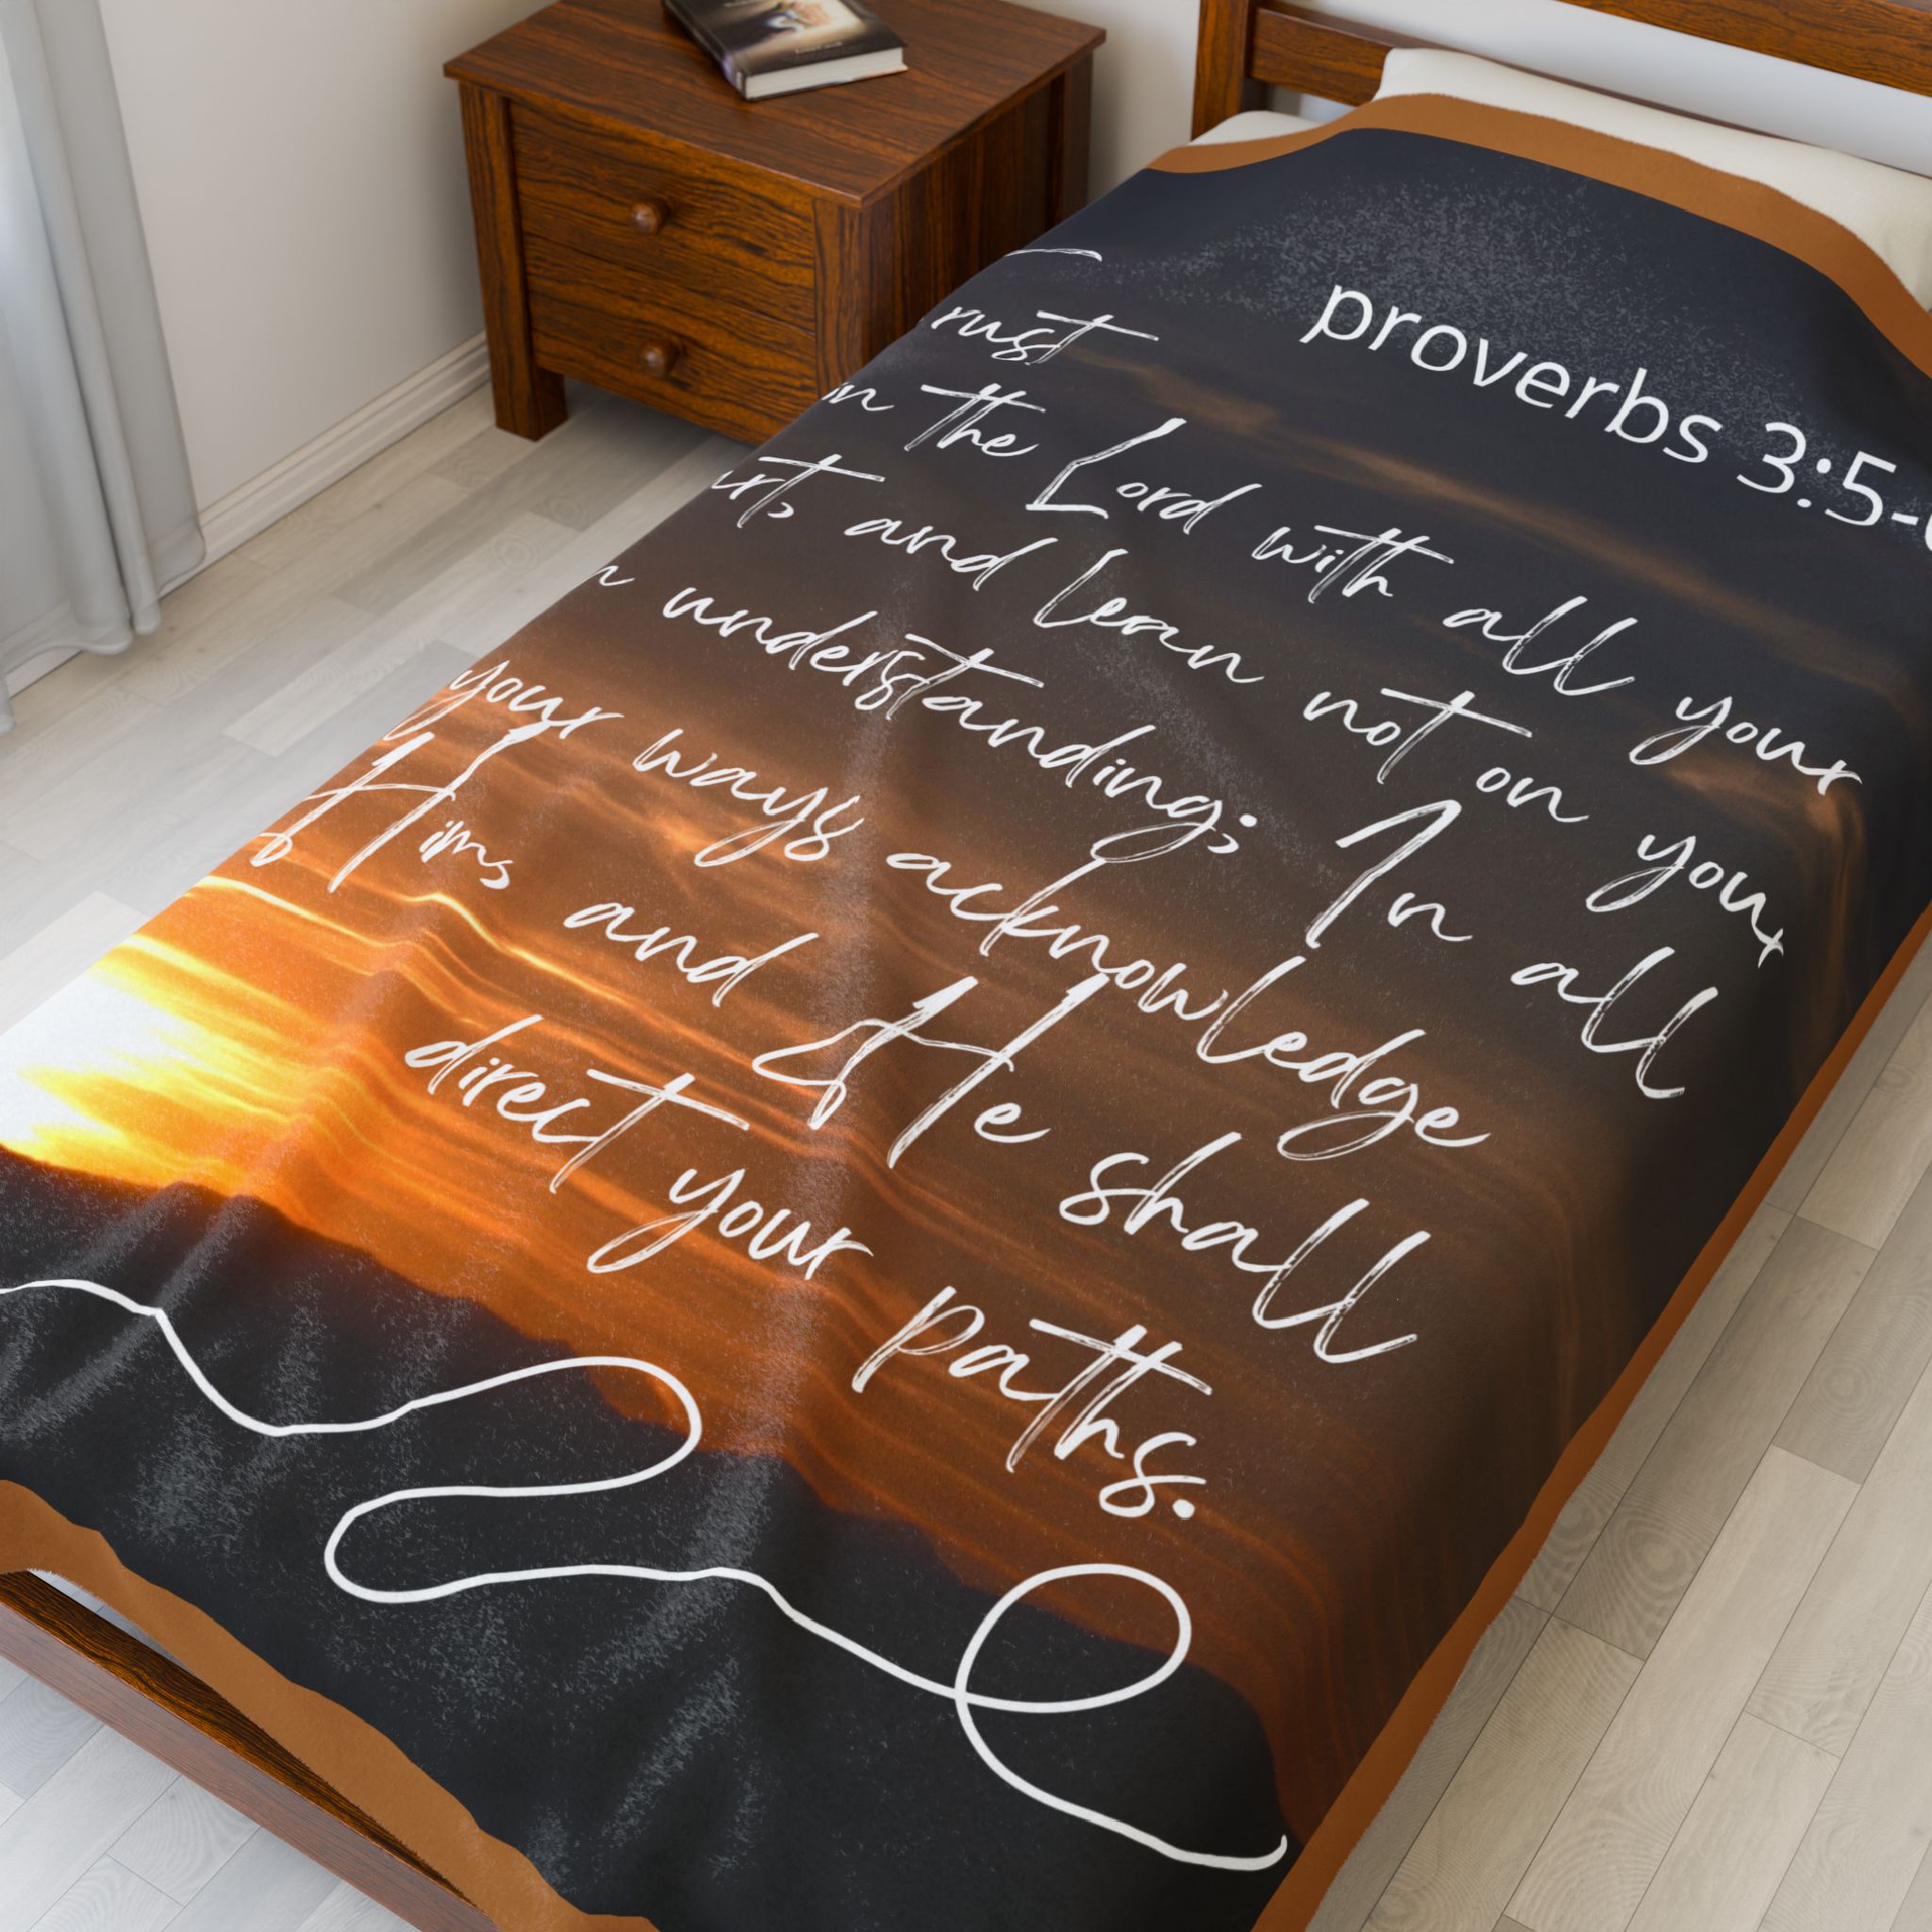 proverbs 3:5-
rust
in the Lord with all your
art, and lean not on your
n understanding; In all
your ways acknowledge
Him, and He shall
direct your paths.